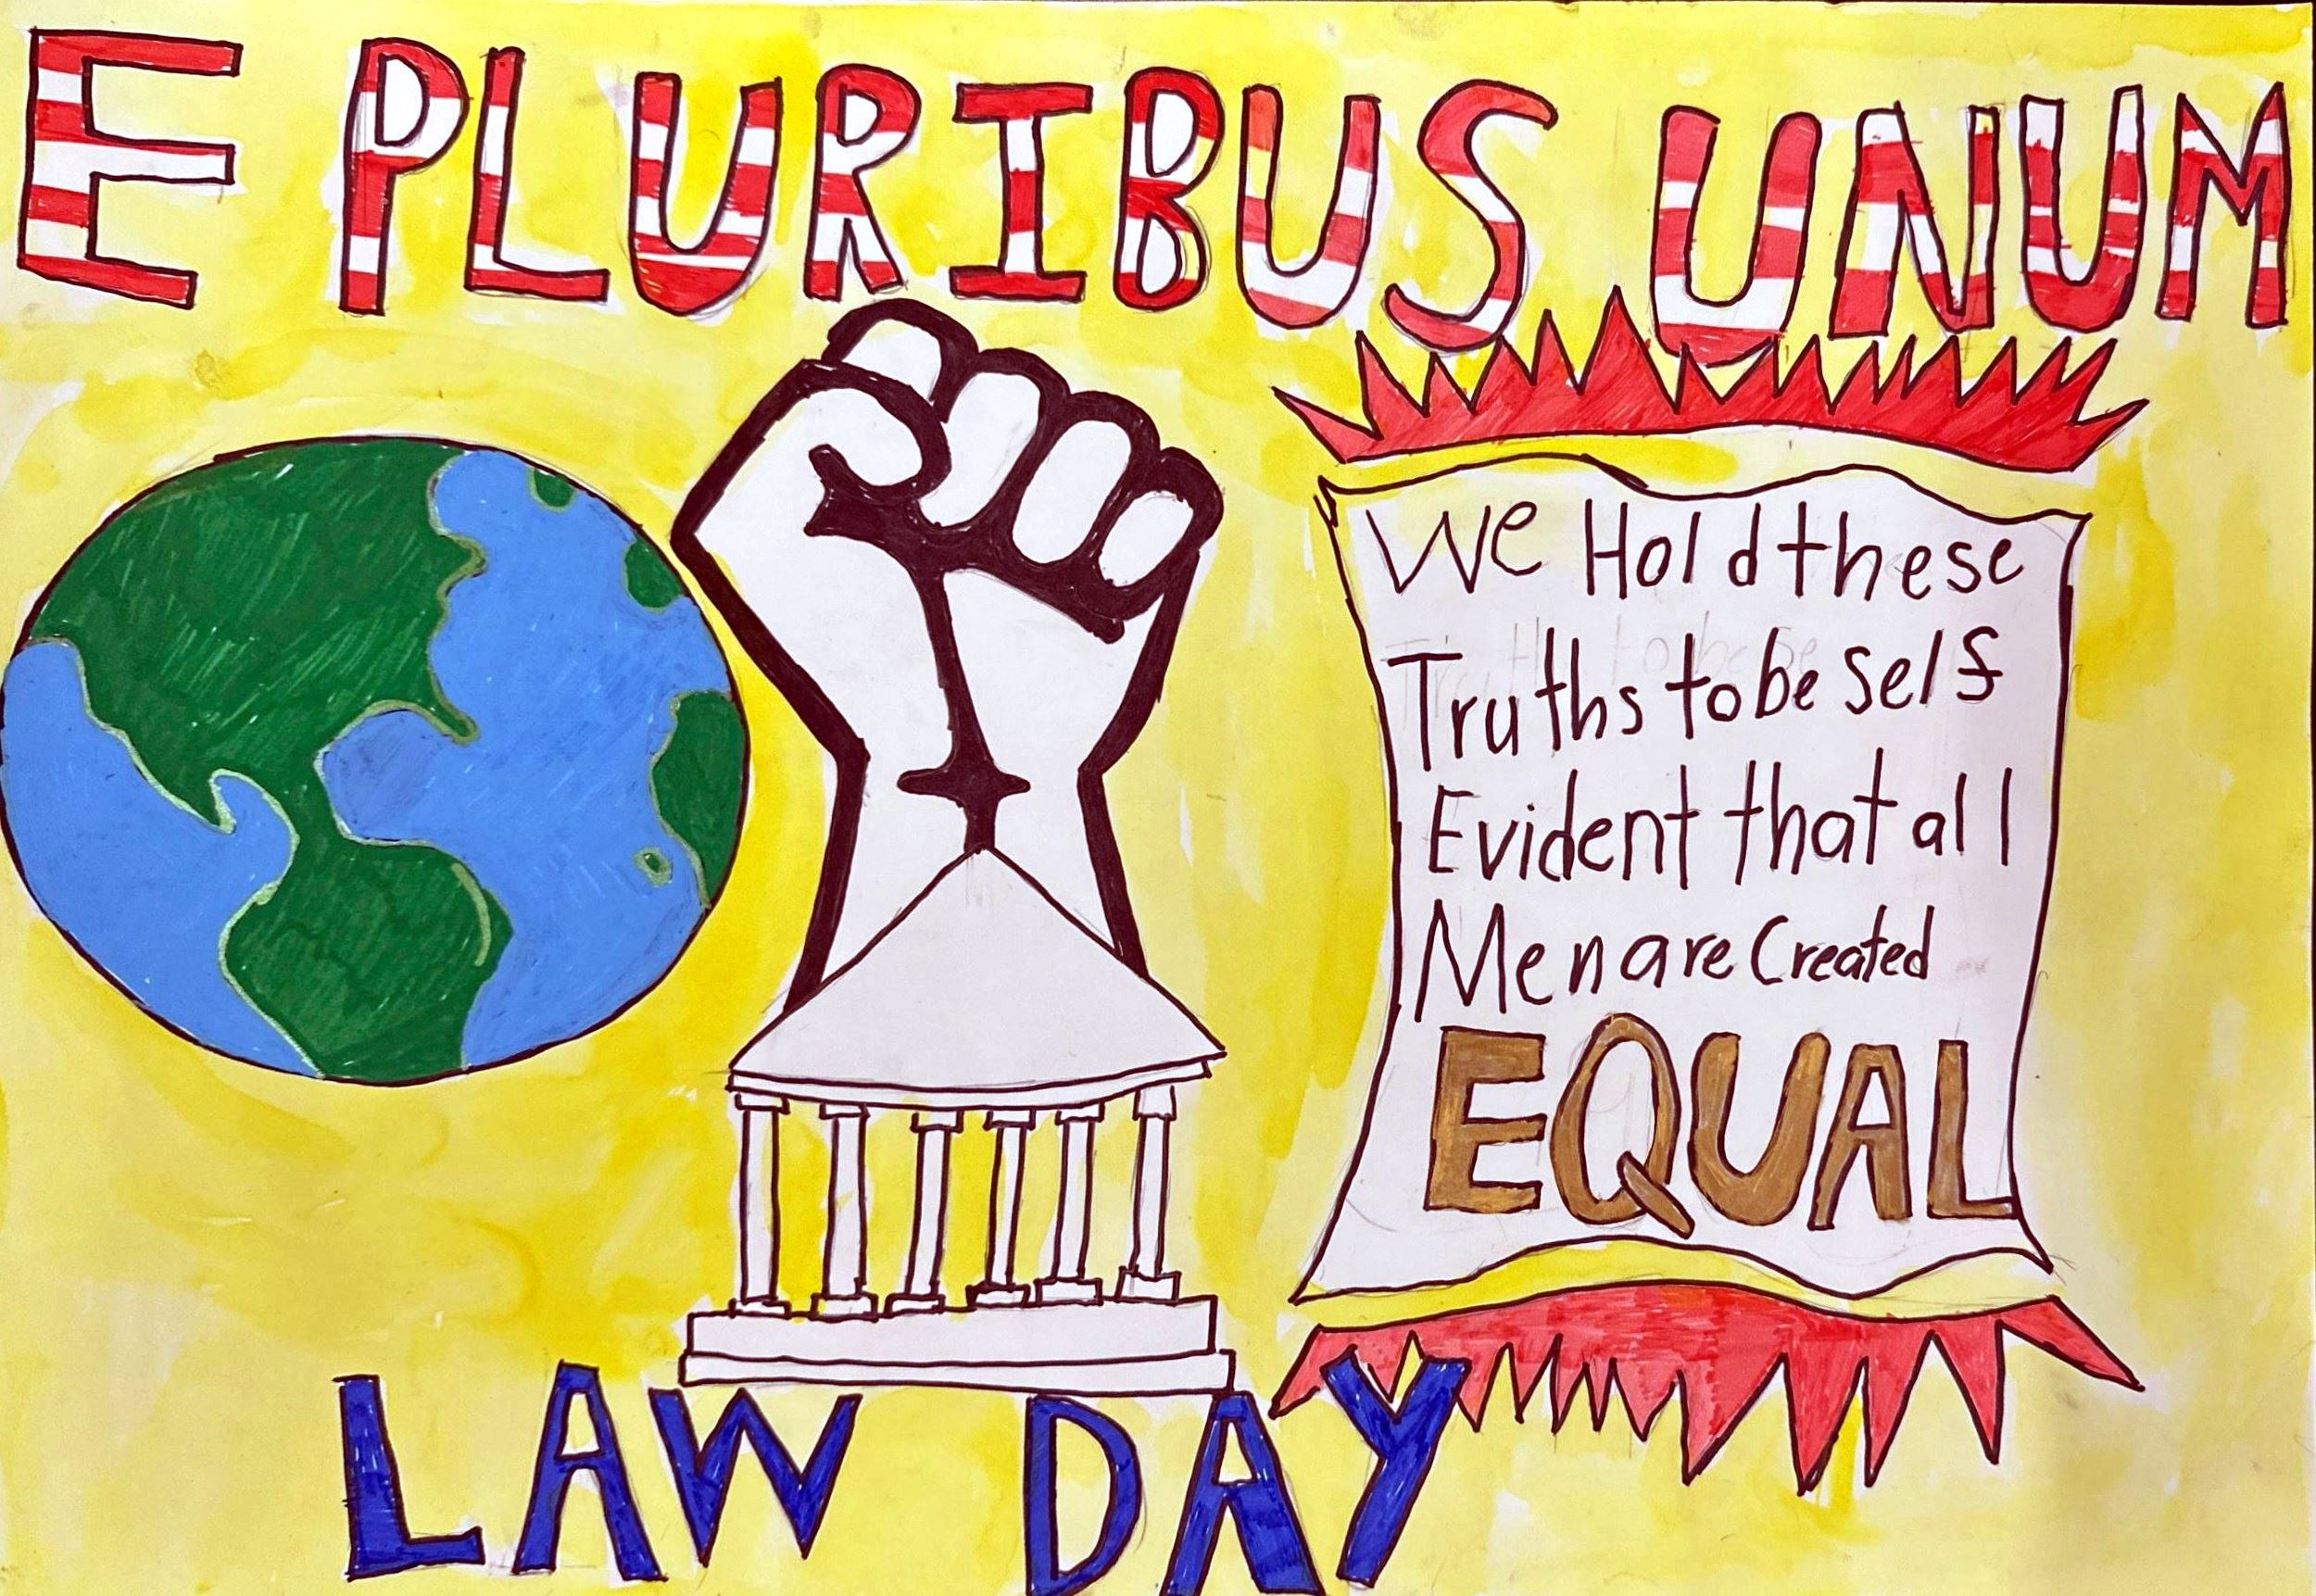 E PLURIBUS UNUM
We Hold these
Truths to be self
Evident that all
Men are Created
EQUAL
LAW DAY